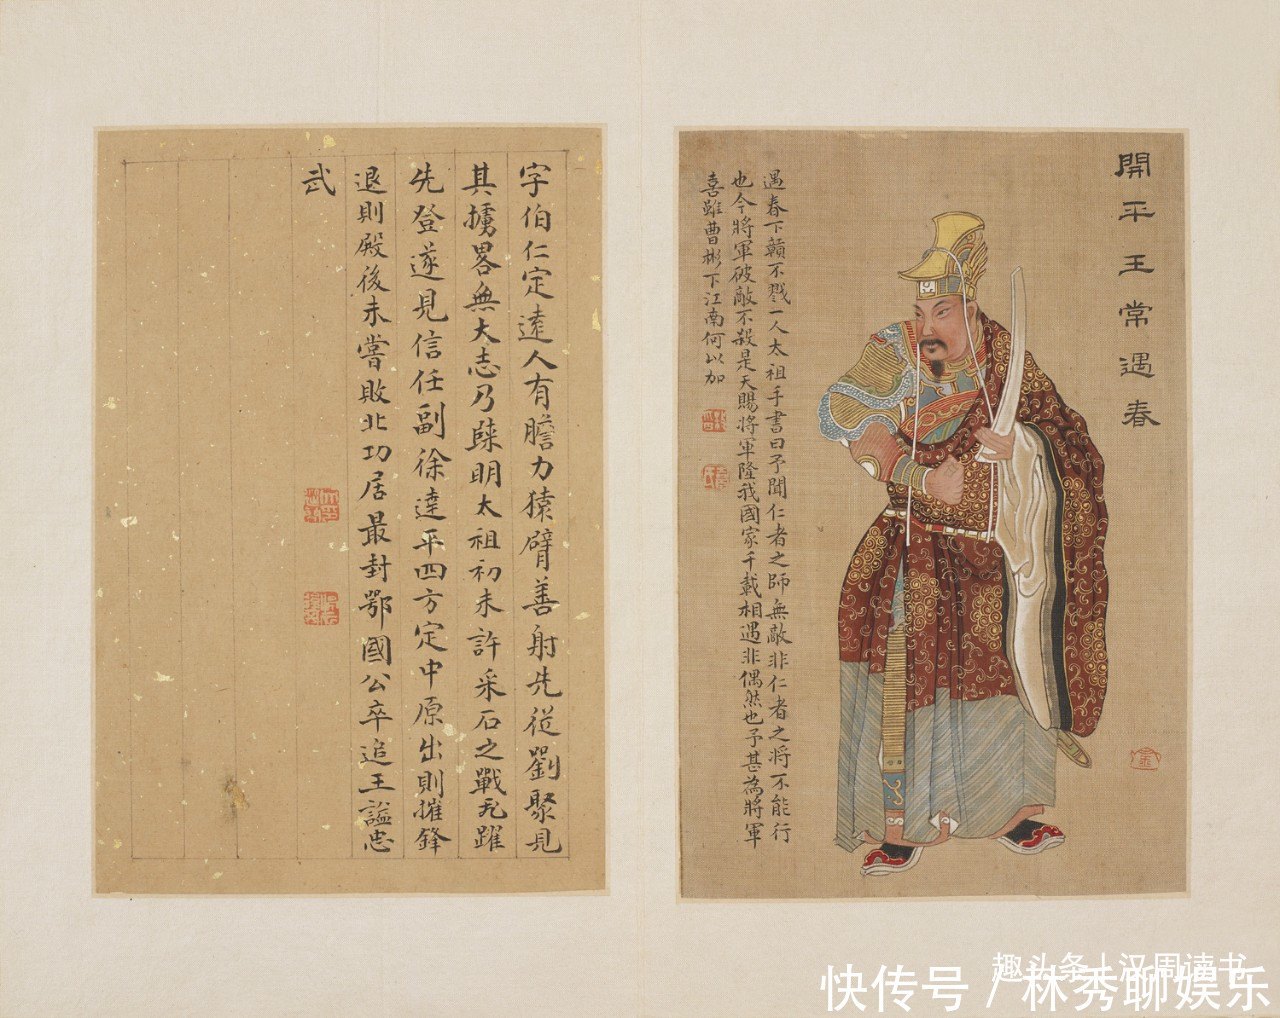 開平王常遇春
遇春下贛不戮一人太祖手書曰予聞仁者之師無敵非仁者之將不能行
也今將軍破敵不殺是天賜將軍隆我國家千載相遇非偶然也予甚為將軍
喜雖曹彬下江南何以加
字伯仁定遠人有膽力猿臂善射先從劉聚見
其擄畧無大志乃明太祖初未許采石之戰飛躍
先登遂見信任副徐達平四方定中原出則摧鋒
退則殿後未嘗敗北功居最封鄂國公卒追王諡忠
武
趣头条 | 汉周读书
快传号 / 林秀聊娱乐